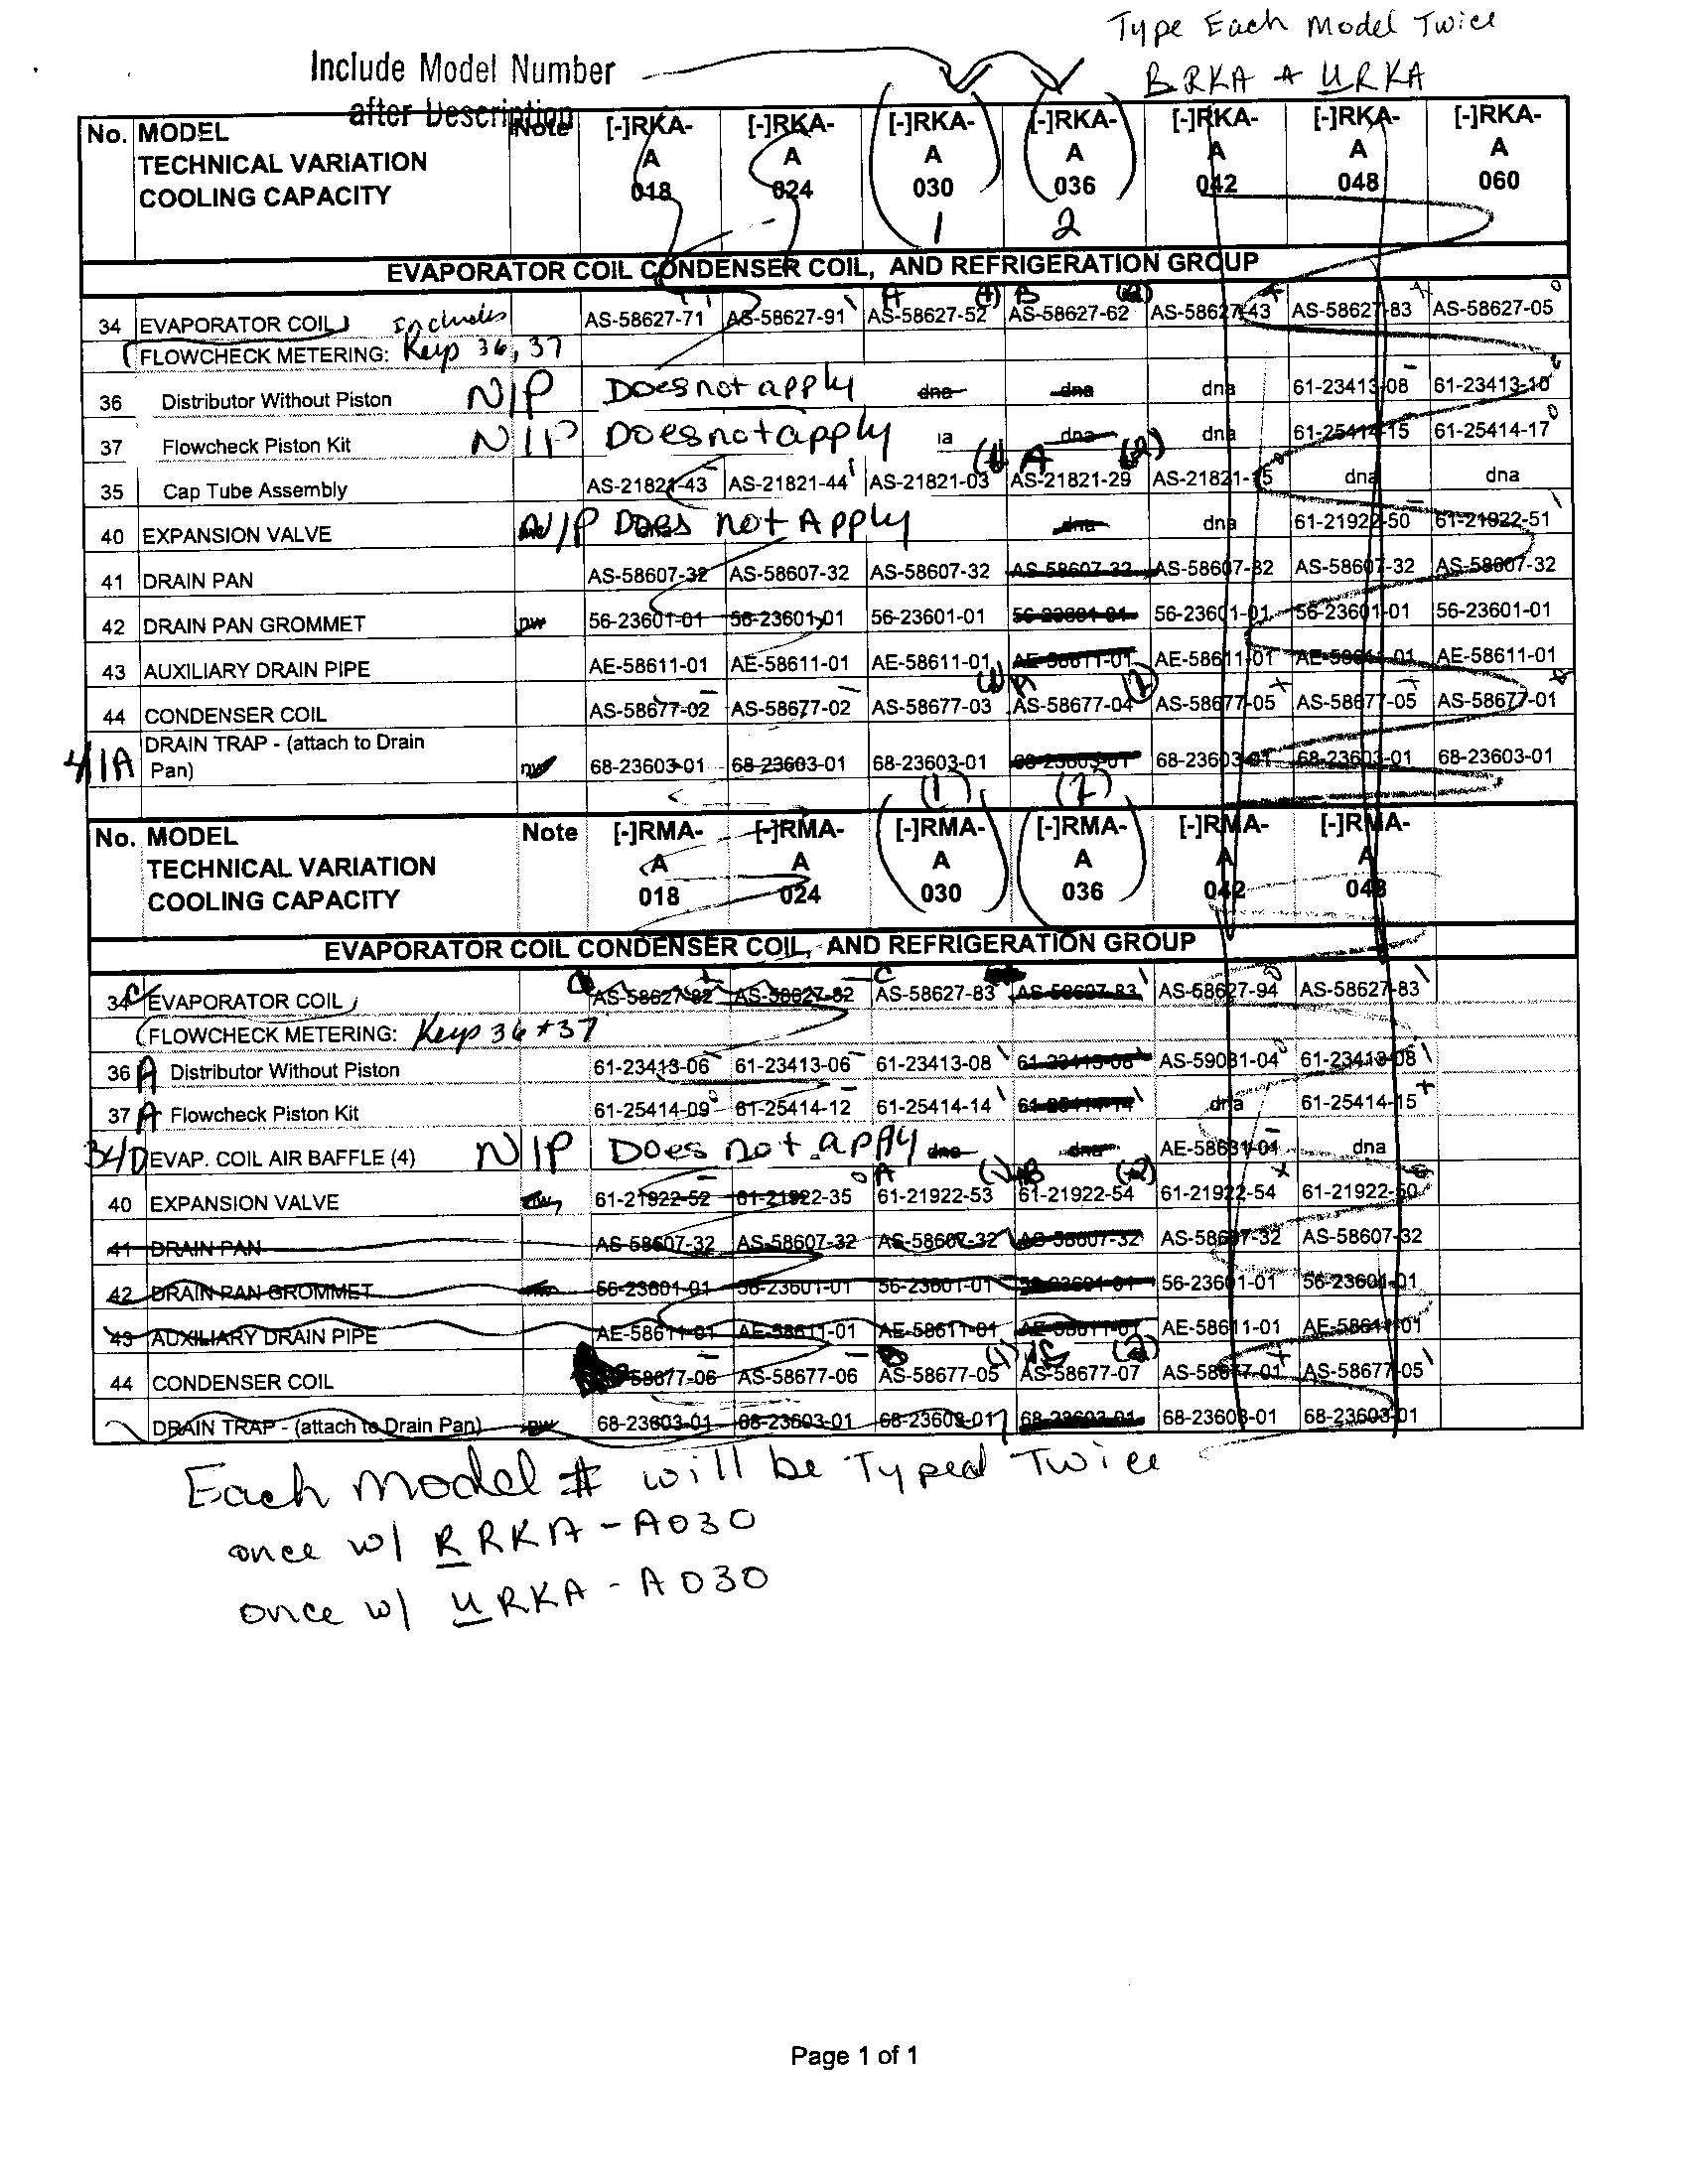 Type Each Model Twice
Include Model Number
after Description
BRKA + URKA
No. MODEL Note [-]RKA- [-]RKA- [-]RKA- [-]RKA- [-]RKA- [-]RKA- [-]RKA-
TECHNICAL VARIATION A A A A A A A
COOLING CAPACITY 018 024 030 036 042 048 060
1 2
EVAPORATOR COIL CONDENSER COIL, AND REFRIGERATION GROUP
A (1) B (2)
34 EVAPORATOR COIL Includes AS-58627-71 AS-58627-91 AS-58627-52 AS-58627-62 AS-58627-43 AS-58627-83 AS-58627-05
FLOWCHECK METERING: Keys 36, 37
36 Distributor Without Piston N/P Does not apply dna dna dna 61-23413-08 61-23413-10
37 Flowcheck Piston Kit N/P Does not apply dna dna 61-25414-15 61-25414-17
(1) A (2)
35 Cap Tube Assembly AS-21821-43 AS-21821-44 AS-21821-03 AS-21821-29 AS-21821-15 dna dna
40 EXPANSION VALVE N/P Does not Apply dna dna 61-21922-50 61-21922-51
41 DRAIN PAN AS-58607-32 AS-58607-32 AS-58607-32 AS-58607-32 AS-58607-32 AS-58607-32 AS-58607-32
42 DRAIN PAN GROMMET nw 56-23601-01 56-23601-01 56-23601-01 56-23601-01 56-23601-01 56-23601-01 56-23601-01
43 AUXILIARY DRAIN PIPE AE-58611-01 AE-58611-01 AE-58611-01 AE-58611-01 AE-58611-01 AE-58611-01 AE-58611-01
44 CONDENSER COIL AS-58677-02 AS-58677-02 AS-58677-03 AS-58677-04 AS-58677-05 AS-58677-05 AS-58677-01
DRAIN TRAP - (attach to Drain
41A Pan) nw 68-23603-01 68-23603-01 68-23603-01 68-23603-01 68-23603-01 68-23603-01 68-23603-01
(1) (2)
No. MODEL Note [-]RMA- [-]RMA- [-]RMA- [-]RMA- [-]RMA- [-]RMA-
TECHNICAL VARIATION A A A A A A
COOLING CAPACITY 018 024 030 036 042 048
EVAPORATOR COIL CONDENSER COIL, AND REFRIGERATION GROUP
34C EVAPORATOR COIL AS-58627-82 AS-58627-82 C AS-58627-83 AS-58627-83 AS-58627-94 AS-58627-83
FLOWCHECK METERING: Keys 36 + 37
36 A Distributor Without Piston 61-23413-06 61-23413-06 61-23413-08 61-23413-08 AS-59031-04 61-23413-08
37 A Flowcheck Piston Kit 61-25414-09 61-25414-12 61-25414-14 61-25414-14 dna 61-25414-15
34D EVAP. COIL AIR BAFFLE (4) N/P Does not apply dna dna AE-58631-01 dna
A (1) B (2)
40 EXPANSION VALVE 61-21922-52 61-21922-35 61-21922-53 61-21922-54 61-21922-54 61-21922-50
41 DRAIN PAN AS-58607-32 AS-58607-32 AS-58607-32 AS-58607-32 AS-58607-32 AS-58607-32
42 DRAIN PAN GROMMET 56-23601-01 56-23601-01 56-23601-01 56-23601-01 56-23601-01 56-23601-01
43 AUXILIARY DRAIN PIPE AE-58611-01 AE-58611-01 AE-58611-01 AE-58611-01 AE-58611-01 AE-58611-01
B (1) C (2)
44 CONDENSER COIL 58677-06 AS-58677-06 AS-58677-05 AS-58677-07 AS-58677-01 AS-58677-05
DRAIN TRAP - (attach to Drain Pan) nw 68-23603-01 68-23603-01 68-23603-01 68-23603-01 68-23603-01 68-23603-01
Each model # will be Typed Twice
once w/ RRKA-A030
once w/ URKA-A030
Page 1 of 1